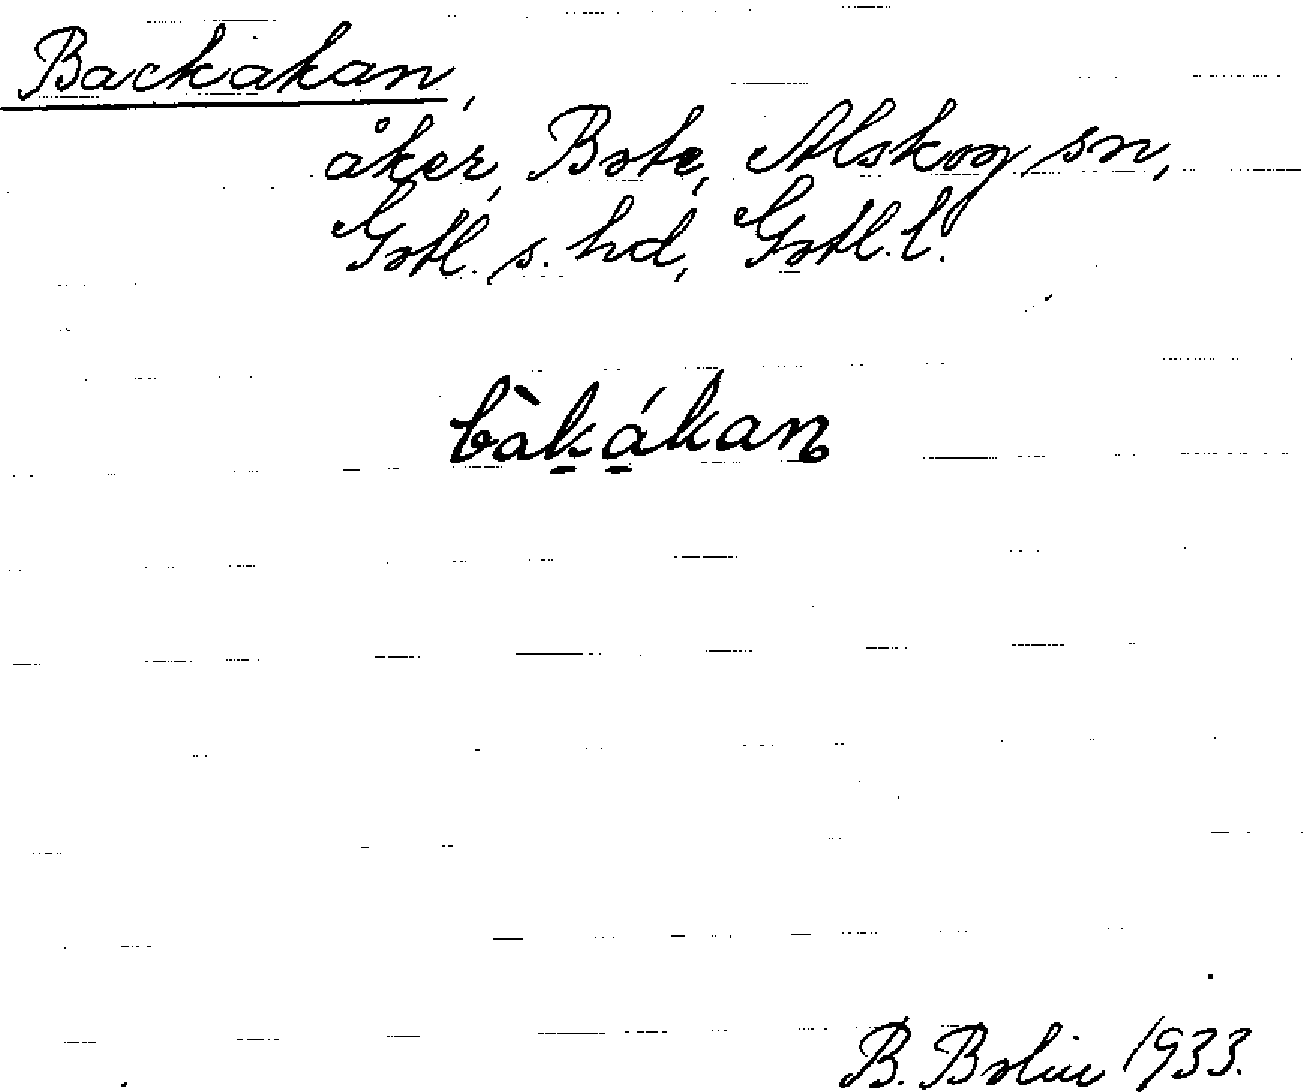 Backakan,
åker, Bote, Alskog sn,
Gotl. s. hd, Gotl. l.
bàkákan
B. Bolin 1933.